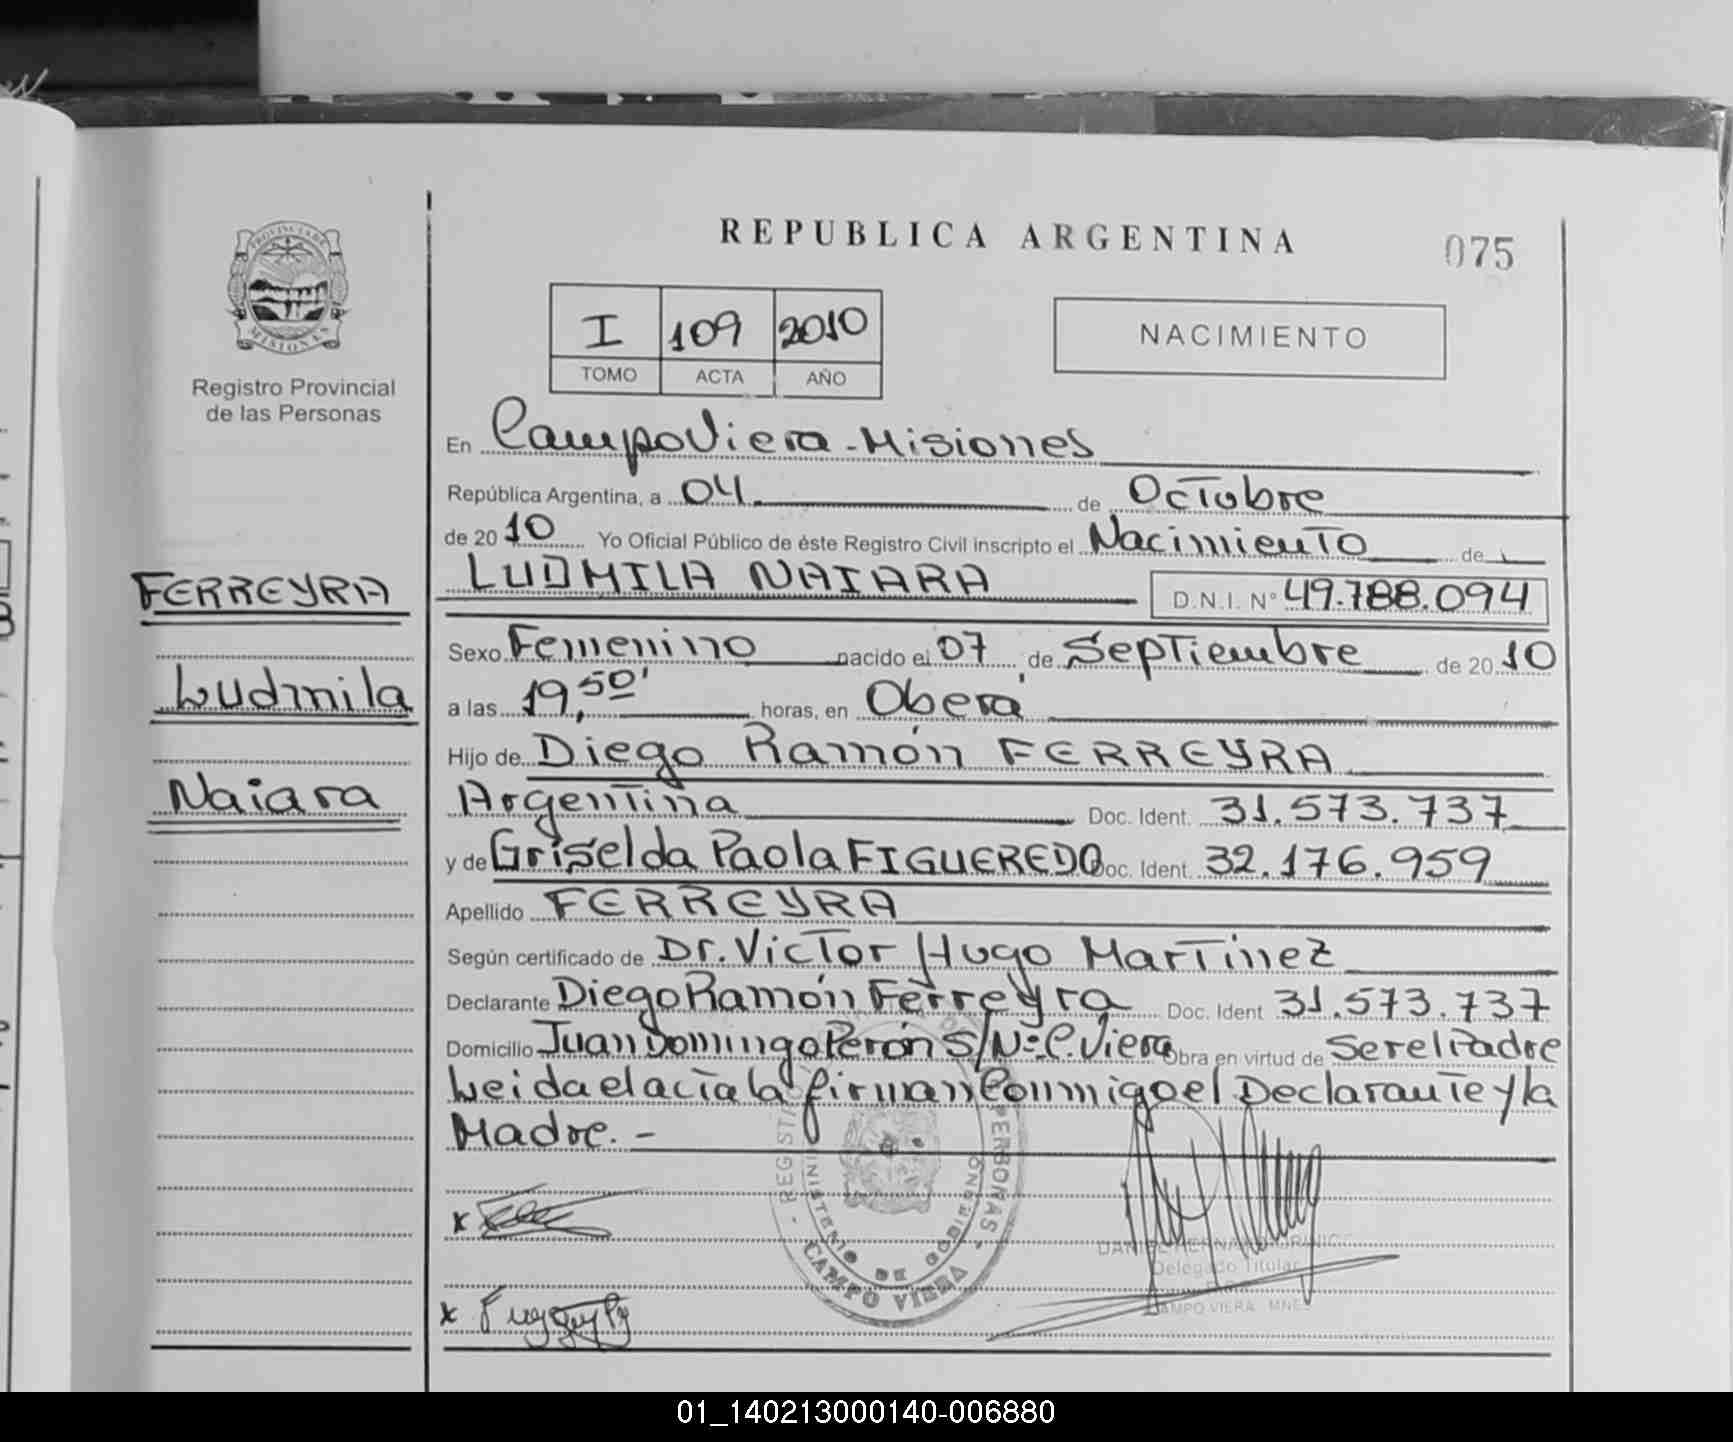 REPUBLICA ARGENTINA
075
PROVINCIA DE
MISIONES
Registro Provincial
de las Personas
I 109 2010
TOMO ACTA AÑO
NACIMIENTO
En Campo Viera - Misiones
República Argentina, a 04 de Octubre
de 2010 Yo Oficial Público de éste Registro Civil inscripto el Nacimiento de
LUDMILA NAIARA D.N.I. N° 49.788.094
FERREYRA
Ludmila
Naiara
Sexo Femenino nacido el 07 de Septiembre de 2010
a las 19,50' horas, en Oberá
Hijo de Diego Ramón FERREYRA
Argentina Doc. Ident. 31.573.737
y de Griselda Paola FIGUEREDO Doc. Ident. 32.176.959
Apellido FERREYRA
Según certificado de Dr. Victor Hugo Martinez
Declarante Diego Ramón Ferreyra Doc. Ident 31.573.737
Domicilio Juan Domingo Perón S/Nº C. Viera Obra en virtud de Ser el Padre
Leida el acta la firman Conmigo el Declarante y la
Madre. -
REGISTRO PERSONAS
MINISTERIO DE GOBIERNO
CAMPO VIERA
Delegado Titular
CAMPO VIERA MNES
01_140213000140-006880